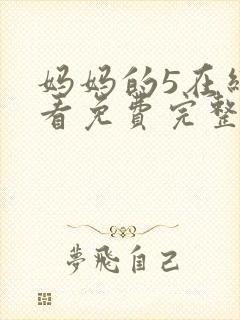 妈妈的5在线
看免费完整
夢飛自己